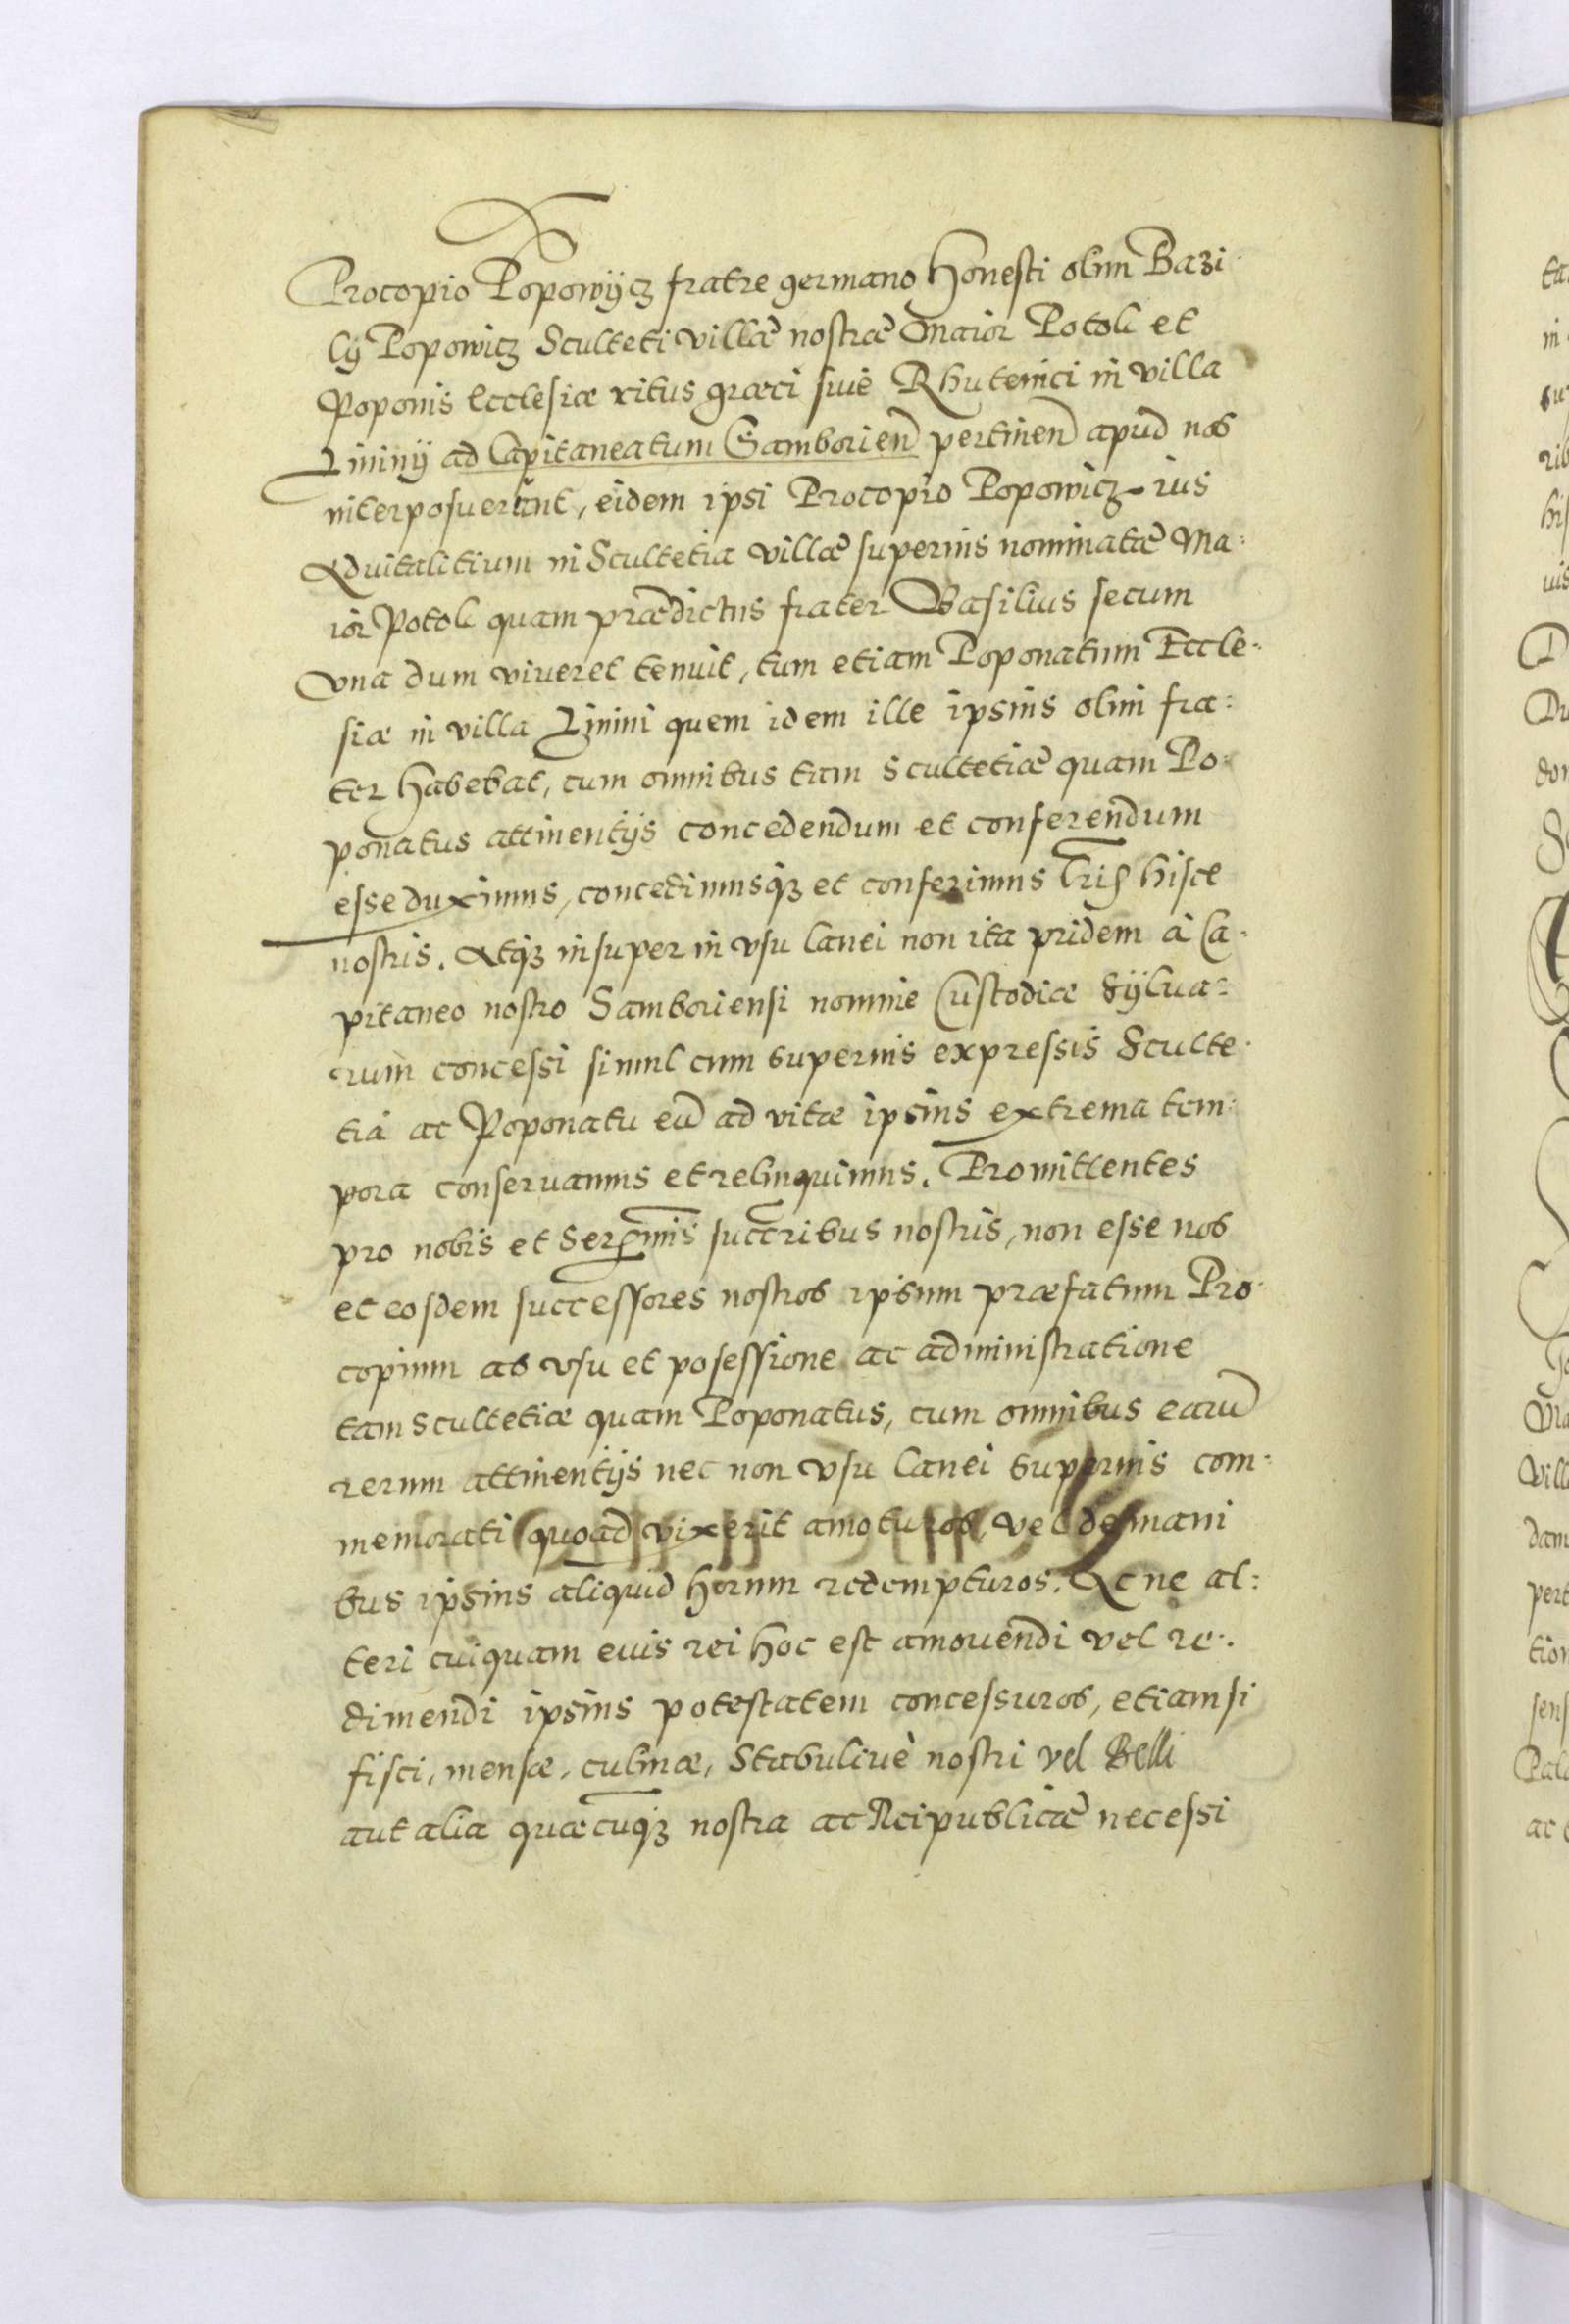 Procopio Popowÿcz fratre germano Honesti olim Bazi
lÿ Popowicz Sculteti villæ nostræ Maior Potok et
Poponis Ecclesiæ ritus græci siue Rhutenici in villa
Zininÿ ad Capitaneatum Samborien pertinen apud nos
interposuerunt, eidem ipsi Procopio Popowicz ius
Aduitalitium in Scultetia villæ superius nominatæ Ma:
ior Potok quam prædictus frater Basilius secum
vna dum viueret tenuit, tum etiam Poponatum Eccle:
siæ in villa Zinini quem idem ille ipsius olim fra:
ter habebat, cum omnibus tam Scultetiæ quam Po:
ponatus attinentÿs concedendum et conferendum
esse duximus, concedimusqꝫ et conferimus Lris hisce
nostris. Atqꝫ insuper in vsu lanei non ita pridem à Ca:
pitaneo nostro Samboriensi nomine Custodiæ Sÿlua:
rum concessi simul cum superius expressis Sculte:
tià ac Poponatu eū ad vitæ ipsius extrema tem:
pora conseruamus et relinquimus. Promittentes
pro nobis et Serꝫmis succribus nostris, non esse nos
et eosdem successores nostros ipsum præfatum Pro:
copium ab vsu et posessione ac administratione
tam Scultetiæ quam Poponatus, cum omnibus earū
rerum attinentÿs nec non vsu lanei superius com:
memorati quoad vixerit amoturos, vel de mani
bus ipsius aliquid horum redempturos. Ac ne al:
teri cuiquam euis rei hoc est amouendi vel re:
dimendi ipsius potestatem concessuros, etiamsi
fisci, mensæ, culinæ, Stabuliuè nostri vel Belli
aut alia quæcuqꝫ nostra ac Reipublicæ necessi